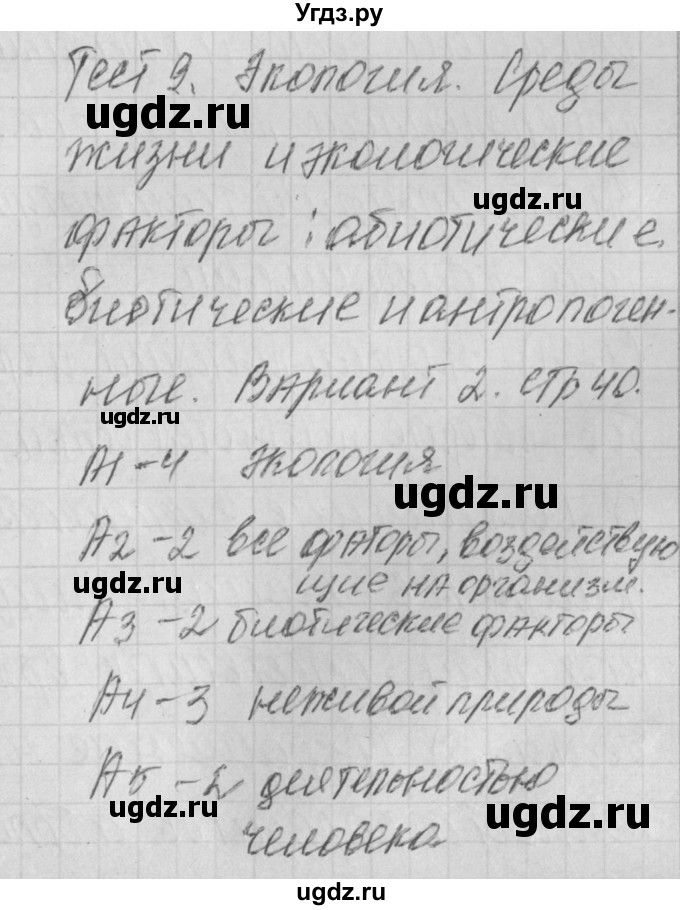 Угдз.ру
Тест 9. Экология. Среды
ugdz.ru
жизни и экологические
ugdz.ru
факторы: абиотические,
биотические и антропоген-
ные. Вариант 2. стр 40.
ugdz.ru
А1-4 экология
ugdz.ru
А2-2 все факторы, воздействую
щие на организм.
ugdz.ru
А3-2 биотические факторы
А4-3 неживой природы
А5-2 деятельностью
ugdz.ru
ugdz.ru
человека
ugdz.ru